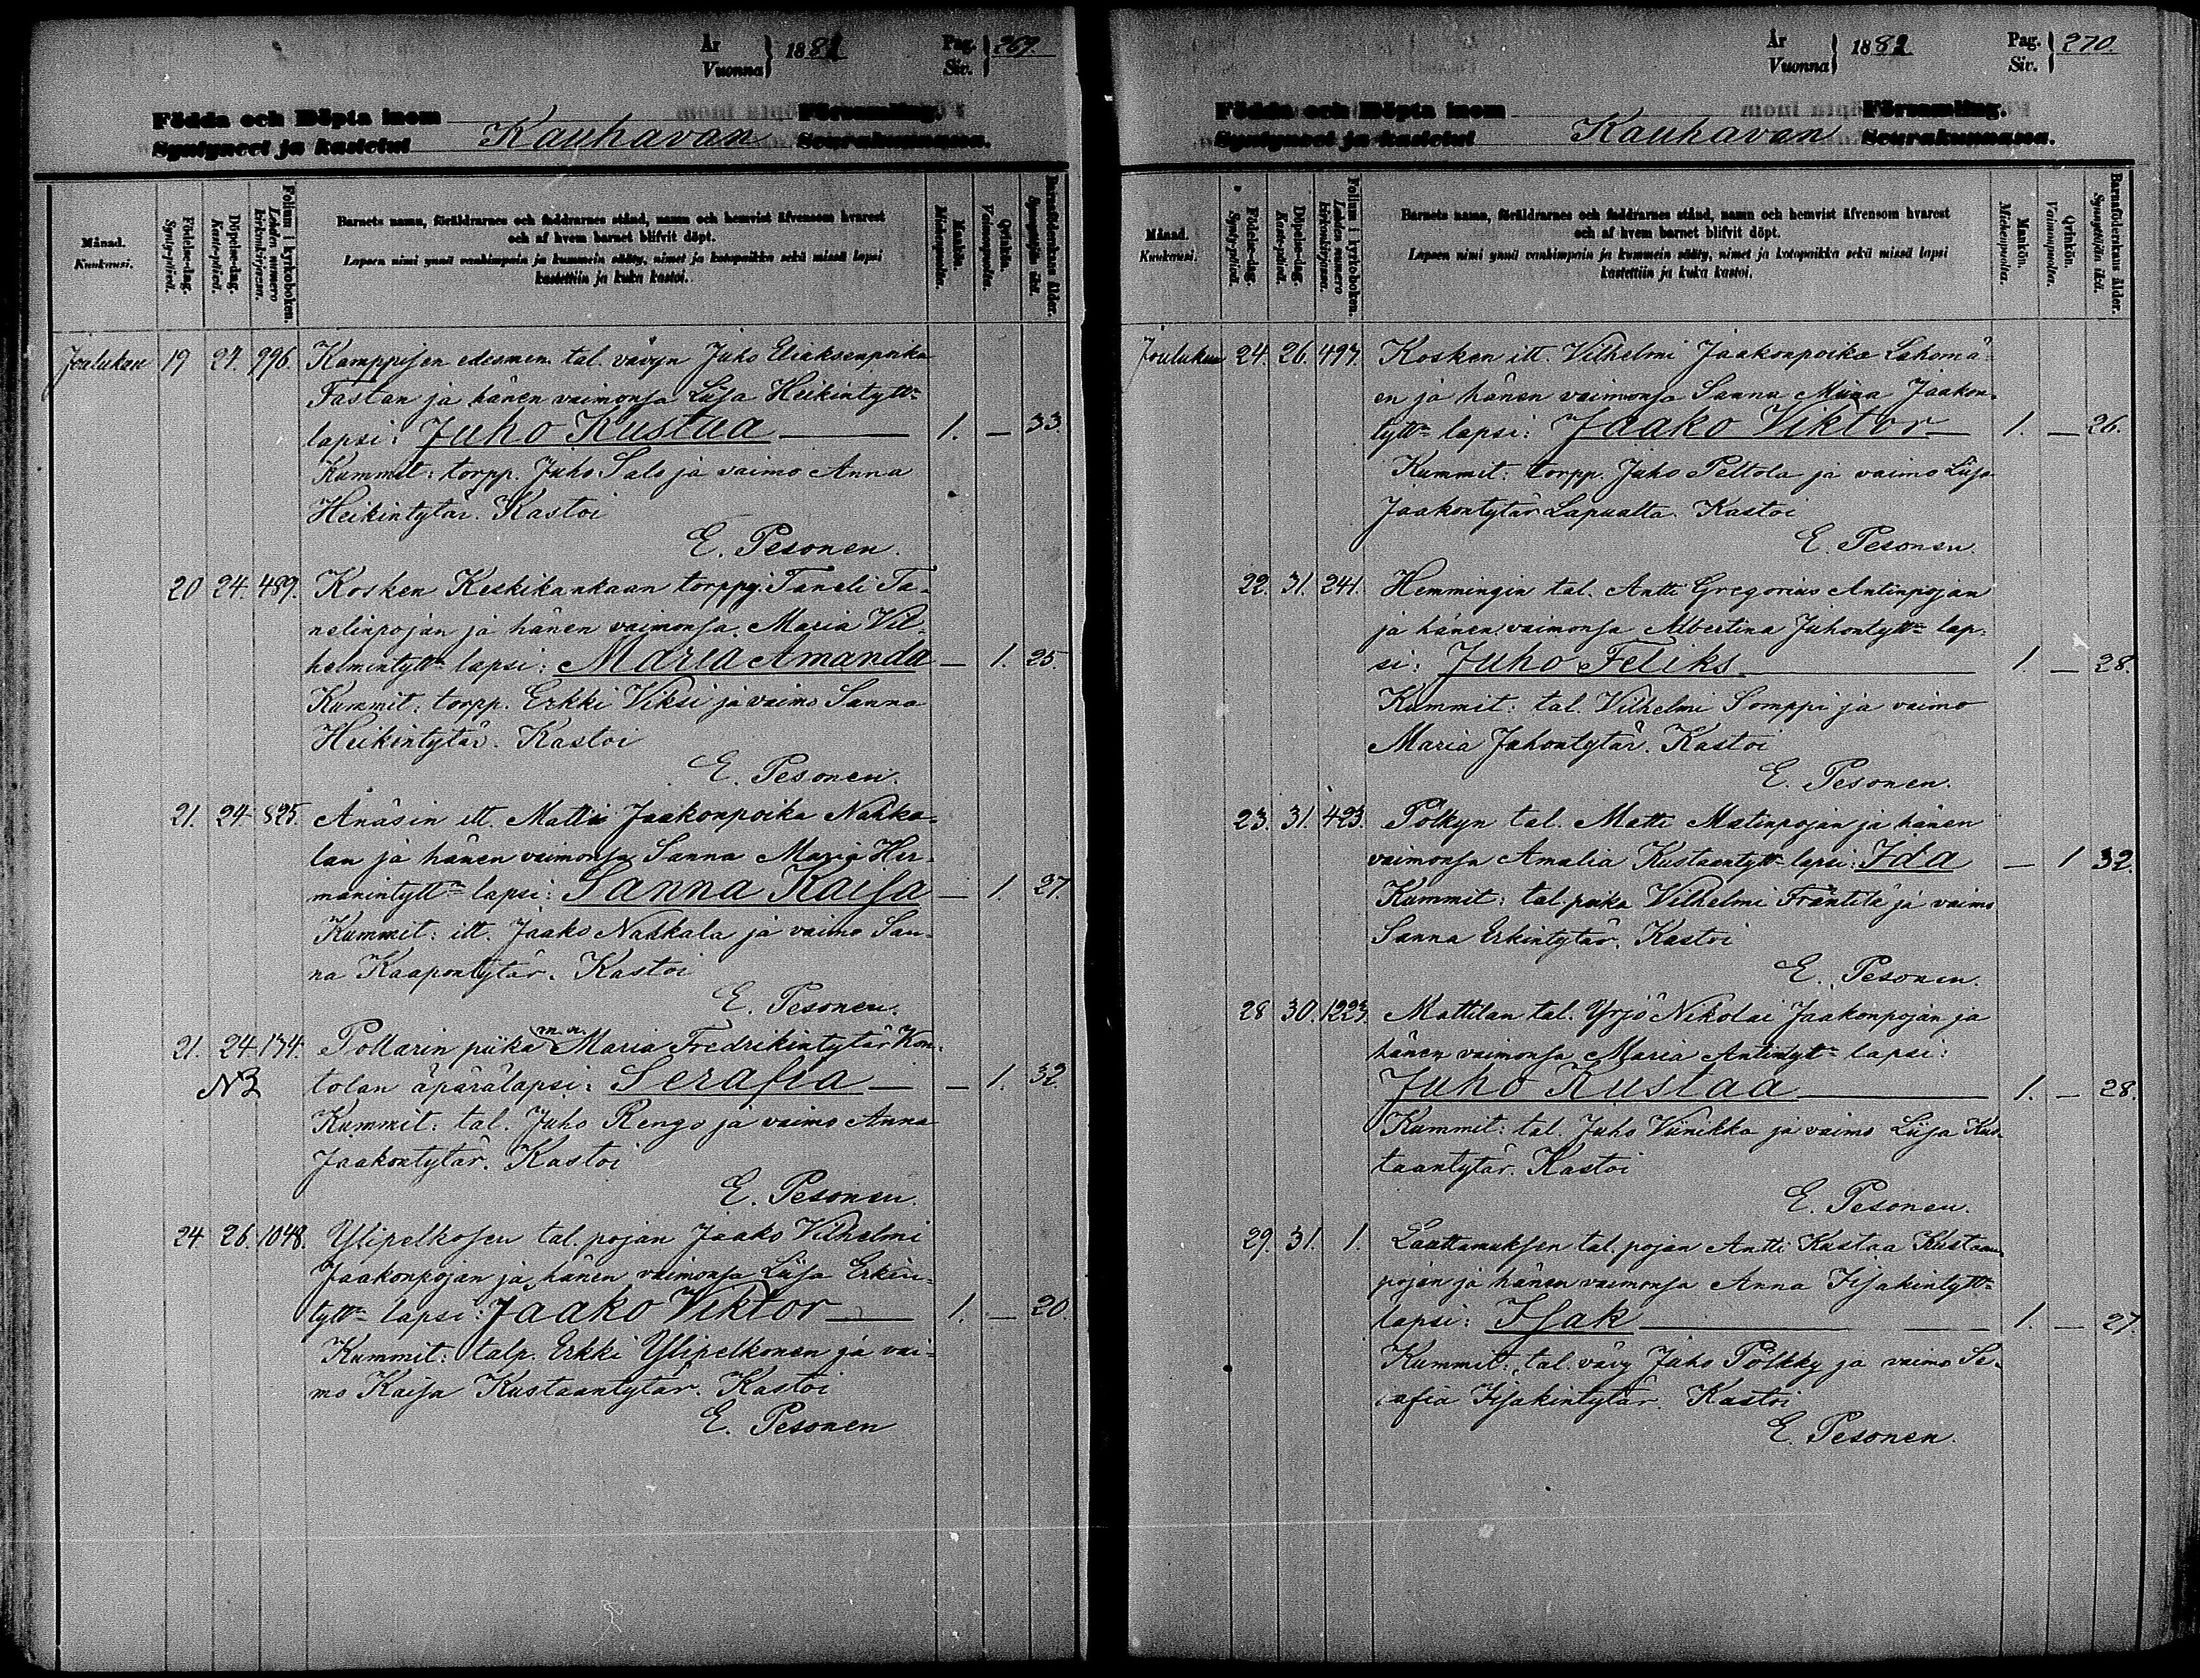 År
Vuonna
1882
Pag.
Siv.
269.
Födda och Döpta inom
Syntyneet ja kastetut
Kauhavan
Församling.
Seurakunnassa.
Månad.
Kuukausi.
Födelse-dag.
Synty-päivä.
Döpelse-dag.
Kaste-päivä.
Folium i kyrkoboken.
Lehden numero
kirkonkirjassa.
Barnets namn, föräldrarnes och faddrarnes stånd, namn och hemvist äfvensom hvarest
och af hvem barnet blifvit döpt.
Lapsen nimi ynnä vanhimpain ja kummein sääty, nimet ja kotopaikka sekä missä lapsi
kastettiin ja kuka kastoi.
Mankön.
Miehenpuolta.
Qvinkön.
Vaimonpuolta.
Barnaföderskans ålder.
Synnyttäjän ikä.
Joulukuu 19 27. 996. Kamppisen edesmen. tal. vävyn Juho Eliaksenpoika
Fastan ja hänen vaimonsa Liisa Heikintytt=
lapsi: Juho Kustaa 1. — 33.
Kummit: torpp. Juho Salo ja vaimo Anna
Heikintytär. Kastoi
E. Pesonen.
20 24. 489. Kosken Keskikankaan torppj. Taneli Ta-
nelinpojan ja hänen vaimonsa Maria Vil-
helmintytt= lapsi: Maria Amanda — 1. 25.
Kummit: torpp. Erkki Viksi ja vaimo Sanna
Heikintytär. Kastoi
E. Pesonen.
21. 24. 825. Änäsin itt. Matti Jaakonpoika Nahka-
lan ja hänen vaimonsa Sanna Maria Her-
manintytt= lapsi: Sanna Kaisa — 1. 27.
Kummit: itt. Jaako Nahkala ja vaimo San-
na Kaapontytär. Kastoi
E. Pesonen.
21. 24. 134. Pollarin piika m.n. Maria Fredrikintytär Kon-
tolan äpärälapsi: Serafia — — 1. 32.
Kummit: tal. Juho Rengo ja vaimo Anna
Jaakontytär. Kastoi
E. Pesonen.
24 26. 1048. Ylipelkosen tal. pojan Jaako Vilhelmi
Jaakonpojan ja hänen vaimonsa Liisa Erkin-
tytt= lapsi: Jaako Viktor — 1. — 20.
Kummit: talp. Erkki Ylipelkonen ja vai-
mo Kaisa Kustaantytär. Kastoi
E. Pesonen
År
Vuonna
1882
Pag.
Siv.
270.
Födda och Döpta inom
Syntyneet ja kastetut
Kauhavan
Församling.
Seurakunnassa.
Månad.
Kuukausi.
Födelse-dag.
Synty-päivä.
Döpelse-dag.
Kaste-päivä.
Folium i kyrkoboken.
Lehden numero
kirkonkirjassa.
Barnets namn, föräldrarnes och faddrarnes stånd, namn och hemvist äfvensom hvarest
och af hvem barnet blifvit döpt.
Lapsen nimi ynnä vanhimpain ja kummein sääty, nimet ja kotopaikka sekä missä lapsi
kastettiin ja kuka kastoi.
Mankön.
Miehenpuolta.
Qvinkön.
Vaimonpuolta.
Barnaföderskans ålder.
Synnyttäjän ikä.
Joulukuu 24. 26. 497. Kosken itt. Vilhelmi Jaakonpoika Lahomä-
en ja hänen vaimonsa Sanna Miina Jaakon-
tytt= lapsi: Jaako Viktor — 1. — 26.
Kummit: torpp. Juho Peltola ja vaimo Liisa
Jaakontytär Lapualta. Kastoi
E. Pesonen.
22. 31. 241. Hemmingin tal. Antti Gregorius Antinpojan
ja hänen vaimonsa Albertina Juhontytt= lap-
si: Juho Feliks 1. — 28.
Kummit: tal. Vilhelmi Somppi ja vaimo
Maria Juhontytär. Kastoi
E. Pesonen.
23. 31. 423. Pölkyn tal. Matti Matinpojan ja hänen
vaimonsa Amalia Kustaantytt= lapsi: Ida — 1 32.
Kummit: tal. poika Vilhelmi Fräntilä ja vaimo
Sanna Erkintytär. Kastoi
E. Pesonen.
28 30. 1223. Mattilan tal. Yrjö Nikolai Jaakonpojan ja
hänen vaimonsa Maria Antintytt= lapsi:
Juho Kustaa 1. — 28.
Kummit: tal. Juho Viinikka ja vaimo Liisa Kus-
taantytär. Kastoi
E. Pesonen.
29. 31. 1. Laattamuksen tal. pojan Antti Kustaa Kustaan-
pojan ja hänen vaimonsa Anna Iisakintytt=
lapsi: Isak 1. — 27.
Kummit: tal. vävy Juho Pölkky ja vaimo Se-
rafia Iisakintytär. Kastoi
E. Pesonen.